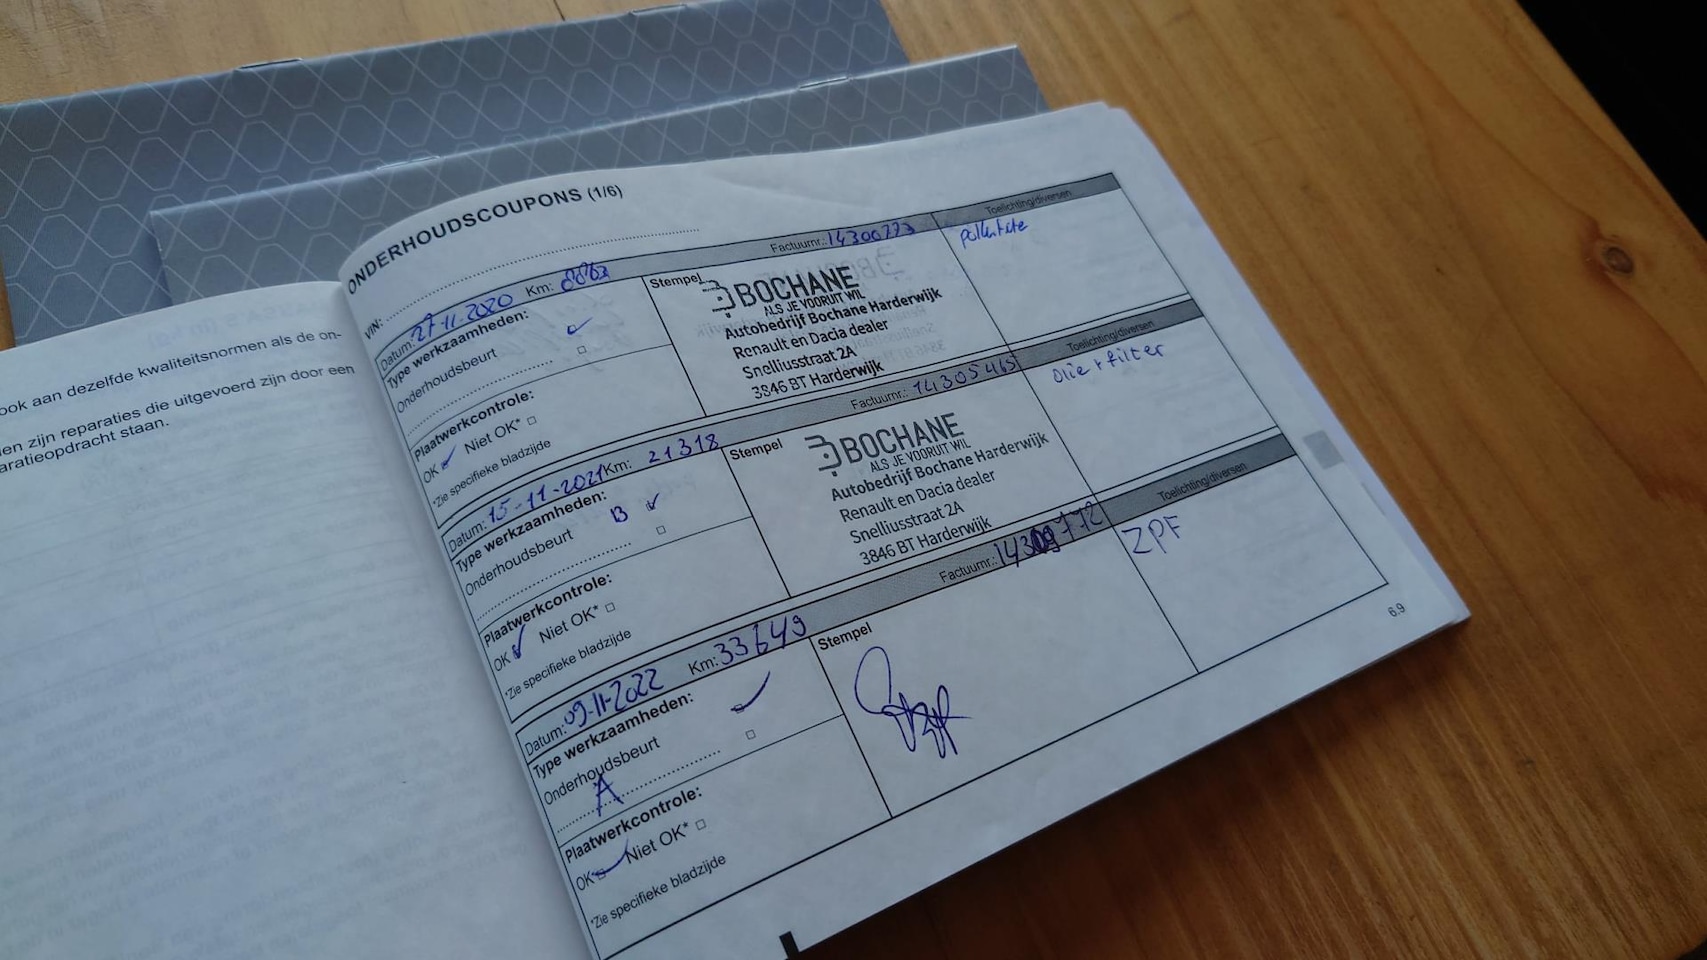 ook aan dezelfde kwaliteitsnormen als de on-
len zijn reparaties die uitgevoerd zijn door een
aratieopdracht staan.
ONDERHOUDSCOUPONS (1/6)
VIN:
Datum: 27-11-2020 Km: 8863 Factuurnr.: 14300773 Toelichting/diversen
Type werkzaamheden:
Onderhoudsbeurt
Plaatwerkcontrole:
OK Niet OK*
*Zie specifieke bladzijde
Stempel
BOCHANE
ALS JE VOORUIT WIL
Autobedrijf Bochane Harderwijk
Renault en Dacia dealer
Snelliusstraat 2A
3846 BT Harderwijk
Datum: 15-11-2021 Km: 21318 Factuurnr.: 14305465 Toelichting/diversen
Type werkzaamheden:
Onderhoudsbeurt B
Plaatwerkcontrole:
OK Niet OK*
*Zie specifieke bladzijde
Stempel
BOCHANE
ALS JE VOORUIT WIL
Autobedrijf Bochane Harderwijk
Renault en Dacia dealer
Snelliusstraat 2A
3846 BT Harderwijk
Olie + filter
Datum: 09-11-2022 Km: 33649 Factuurnr.: 14309772 Toelichting/diversen
Type werkzaamheden:
Onderhoudsbeurt
A
Plaatwerkcontrole:
OK Niet OK*
*Zie specifieke bladzijde
Stempel
ZPF
6.9